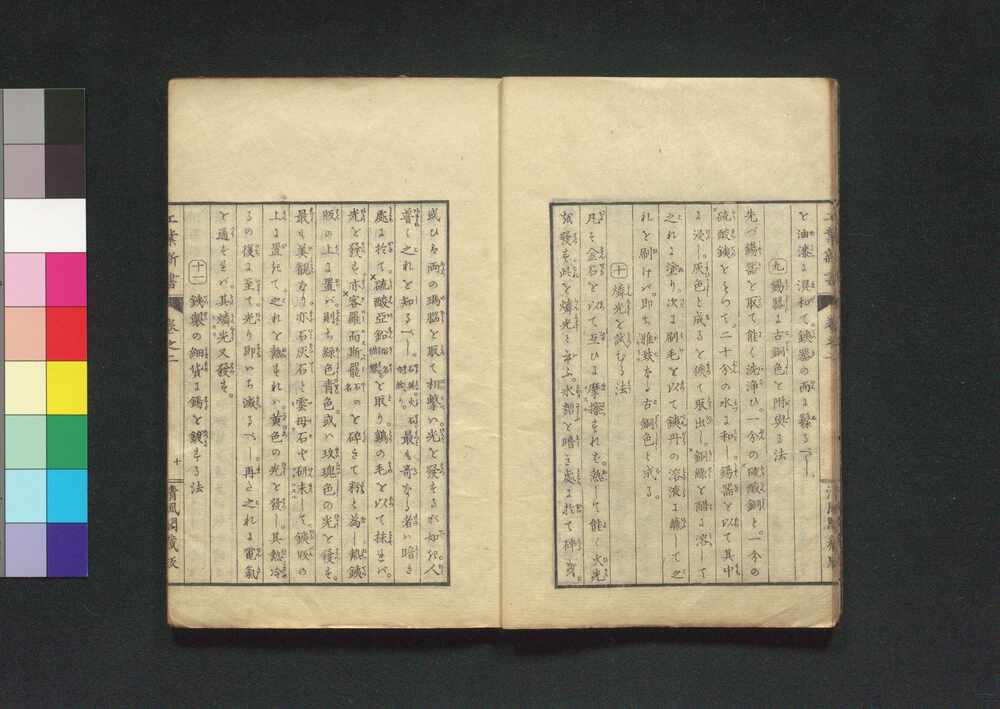 を油漆に溟和て鉄器の両に髹るべし
九 錫器に古銅色を附與する法
先づ錫器を取て能く洗浄ひ。一分の硫酸銅と。一分の
硫酸鉄とをもつて。二十分の水に和し錫器を以て其中
に浸し。灰色と成るを俟て取出し。銅緑を醋に溶して
之れに塗り。次に刷毛を以て鉄丹の溶液に蘸して之
れを刷けバ。即ち雅致なる古銅色と成る。
十 燐光を試むる法
凡そ金石を以て互ひに摩擦すれば。熱して能く火光
を發す。此を燐光と云ふ。水部を暗き處に於て碎き。
或ひは両の瑪瑙を取て相撃バ光を發するが如し。人
普く之れを知るべし。最も奇なる者ハ暗き
處に於て。硫酸亞鉛を取り。鵞の毛を以て抹せバ。
光を發す。亦客羅而斯罷を碎きて粉と為し。熱鉄
版の上に置バ則ち緑色青色。或ハ玫瑰色の光を發す。
最も美観なり。亦石灰石と雲母石や研末して。鉄版の
上に置きて。之れを熱すれバ。黄色の光を發し。其熱冷
るの後に至て。光り即いち滅るべし。再之れに電氣
を通ずれバ其燐光又發す。
十一 鉄製の細貨に錫を鍍する法
工業新書 卷之二 十 清風閣蔵版